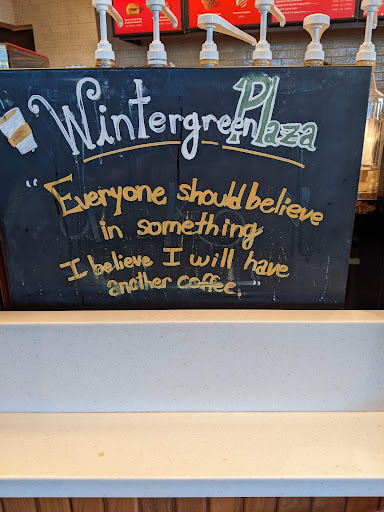 Wintergreen Plaza
"Everyone should believe
in something
I believe I will have
another coffee."